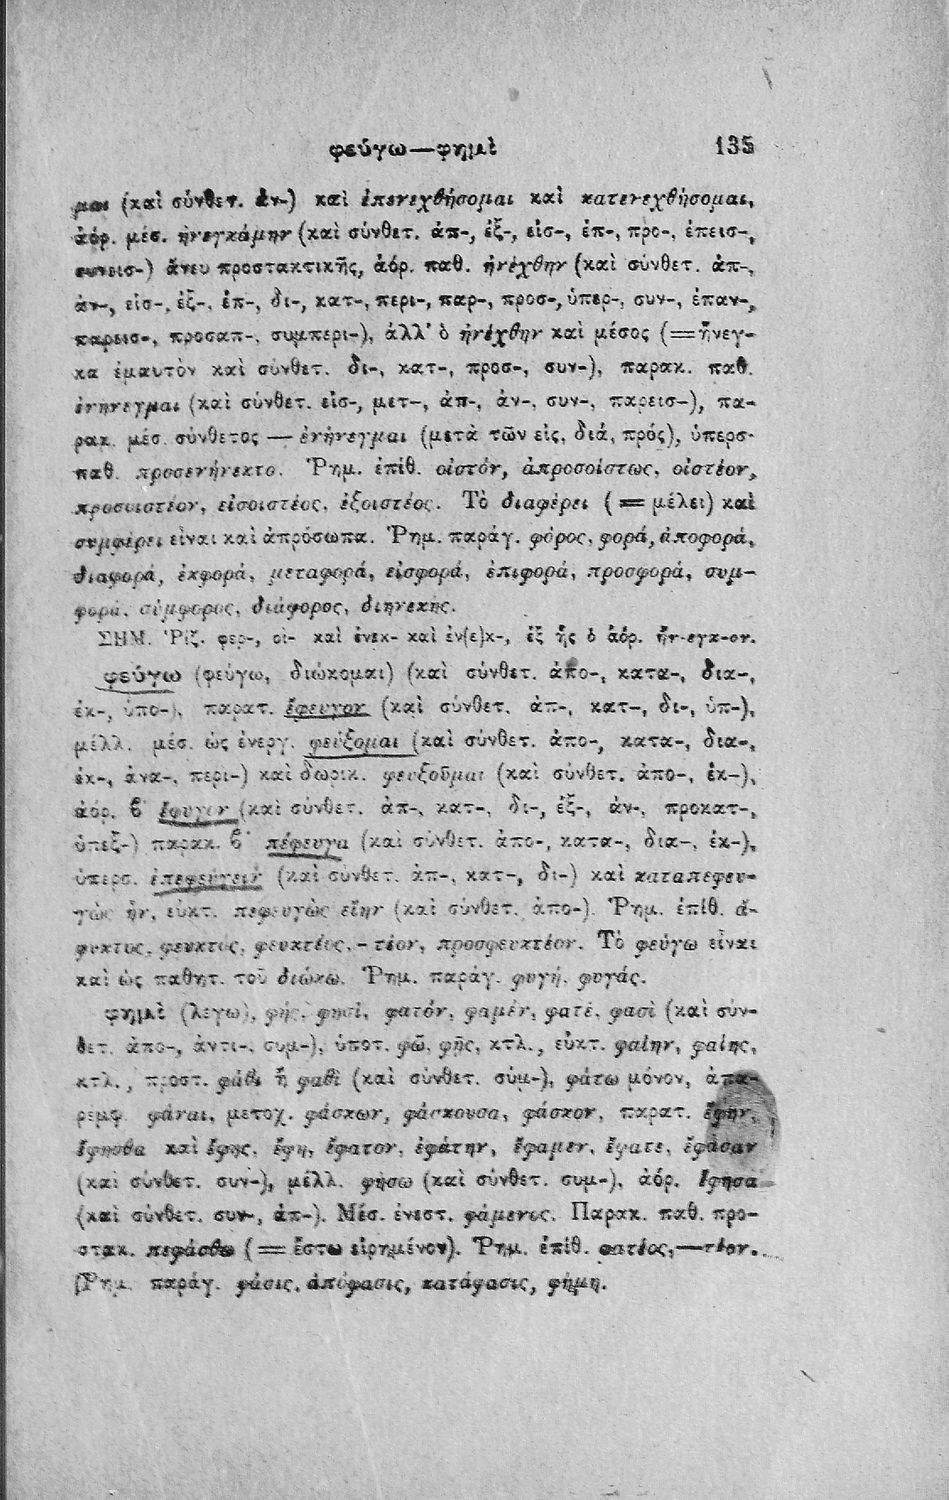 φεύγω—φημὶ 135
μαι (καὶ σύνθετ. ἀν-) καὶ ἐπενεχθήσομαι καὶ κατενεχθήσομαι,
ἀόρ. μέσ. ἠνεγκάμην (καὶ σύνθετ. ἀπ-, ἐξ-, εἰσ-, ἐπ-, προ-, ἐπεισ-,
συνεισ-) ἄνευ προστακτικῆς, ἀόρ. παθ. ἠνέχθην (καὶ σύνθετ. ἀπ-,
ἀν-, εἰσ-, ἐξ-, ἐπ-, δι-, κατ-, περι-, παρ-, προσ-, ὑπερ-, συν-, ἐπαν-,
παρεισ-, προσαπ-, συμπερι-), ἀλλ' ὁ ἠνέχθην καὶ μέσος (=ἤνεγ-
κα ἐμαυτὸν καὶ σύνθετ. δι-, κατ-, προσ-, συν-), παρακ. παθ.
ἐνήνεγμαι (καὶ σύνθετ. εἰσ-, μετ-, ἀπ-, ἀν-, συν-, παρεισ-), πα-
ρακ. μέσ. σύνθετος — ἐνήνεγμαι (μετὰ τῶν εἰς, διά, πρός), ὑπερσ.
παθ. προσενήνεκτο. Ῥημ. ἐπίθ. οἰστόν, ἀπροσοίστως, οἰστέον,
προσοιστέον, εἰσοιστέος, ἐξοιστέος. Τὸ διαφέρει (=μέλει) καὶ
συμφέρει εἶναι καὶ ἀπρόσωπα. Ῥημ. παράγ. φόρος, φορά, ἀποφορά,
διαφορά, ἐκφορά, μεταφορά, εἰσφορά, ἐπιφορά, προσφορά, συμ-
φορά, σύμφορος, διάφορος, διηνεκής.
ΣΗΜ. Ῥίζ. φερ-, οἰ- καὶ ἐνεκ- καὶ ἐν(ε)κ-, ἐξ ἧς ὁ ἀόρ. ἤν-εγκ-ον.
φεύγω (φεύγω, διώκομαι) (καὶ σύνθετ. ἀπο-, κατα-, δια-,
ἐκ-, ὑπο-), παρατ. ἔφευγον (καὶ σύνθετ. ἀπ-, κατ-, δι-, ὑπ-),
μέλλ. μέσ. ὡς ἐνεργ. φεύξομαι (καὶ σύνθετ. ἀπο-, κατα-, δια-,
ἐκ-, ἀνα-, περι-) καὶ δωρικ. φευξοῦμαι (καὶ σύνθετ. ἀπο-, ἐκ-),
ἀόρ. β' ἔφυγον (καὶ σύνθετ. ἀπ-, κατ-, δι-, ἐξ-, ἀν-, προκατ-,
ὑπεξ-) παρακ. β' πέφευγα (καὶ σύνθετ. ἀπο-, κατα-, δια-, ἐκ-),
ὑπερσ. ἐπεφεύγειν (καὶ σύνθετ. ἀπ-, κατ-, δι-) καὶ καταπεφευ-
γὼς ἦν, εὐκτ. πεφευγὼς εἴην (καὶ σύνθετ. ἀπο-). Ῥημ. ἐπίθ. ἄ-
φυκτος, φευκτός, φευκτέος, -τέον, προσφευκτέον. Τὸ φεύγω εἶναι
καὶ ὡς παθητ. τοῦ διώκω. Ῥημ. παράγ. φυγή, φυγάς.
φημὶ (λέγω), φής, φησί, φατόν, φαμέν, φατέ, φασὶ (καὶ σύν-
θετ. ἀπο-, ἀντι-, συμ-), ὑποτ. φῶ, φῇς, κτλ., εὐκτ. φαίην, φαίης,
κτλ., προστ. φάθι ἢ φαθὶ (καὶ σύνθετ. σύμ-), φάτω μόνον, ἀπα-
ρεμφ. φάναι, μετοχ. φάσκων, φάσκουσα, φάσκον, παρατ. ἔφην,
ἔφησθα καὶ ἔφης, ἔφη, ἔφατον, ἐφάτην, ἔφαμεν, ἔφατε, ἔφασαν
(καὶ σύνθετ. συν-), μέλλ. φήσω (καὶ σύνθετ. συμ-), ἀόρ. ἔφησα
(καὶ σύνθετ. συν-, ἀπ-). Μέσ. ἐνεστ. φάμενος. Παρακ. παθ. προ-
στακ. πεφάσθω (=ἔστω εἰρημένον). Ῥημ. ἐπίθ. φατέος,—τέον.
Ῥημ. παράγ. φάσις, ἀπόφασις, κατάφασις, φήμη.